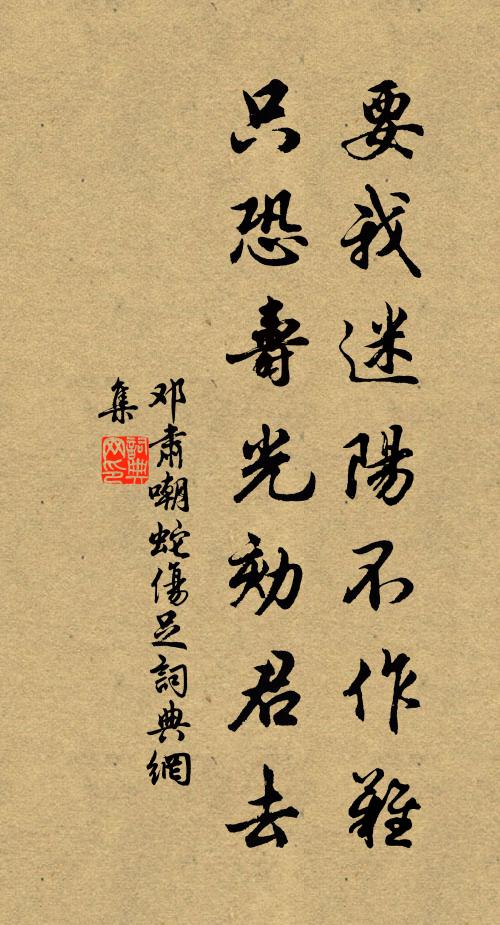 要我迷陽不作難
只恐壽光劾君去
邓肅嘲蛇傷足詞典網
集
詞典
网印